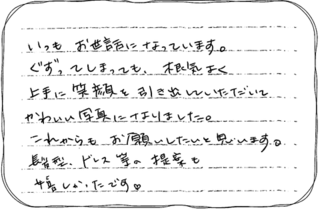 いつも お世話になっています。
ぐずってしまっても、根気よく
上手に 笑顔を 引き出していただいて
かわいい写真になりました。
これからも お願いしたいと思います。
髪型、ドレス 等の 提案も
嬉しかったです。